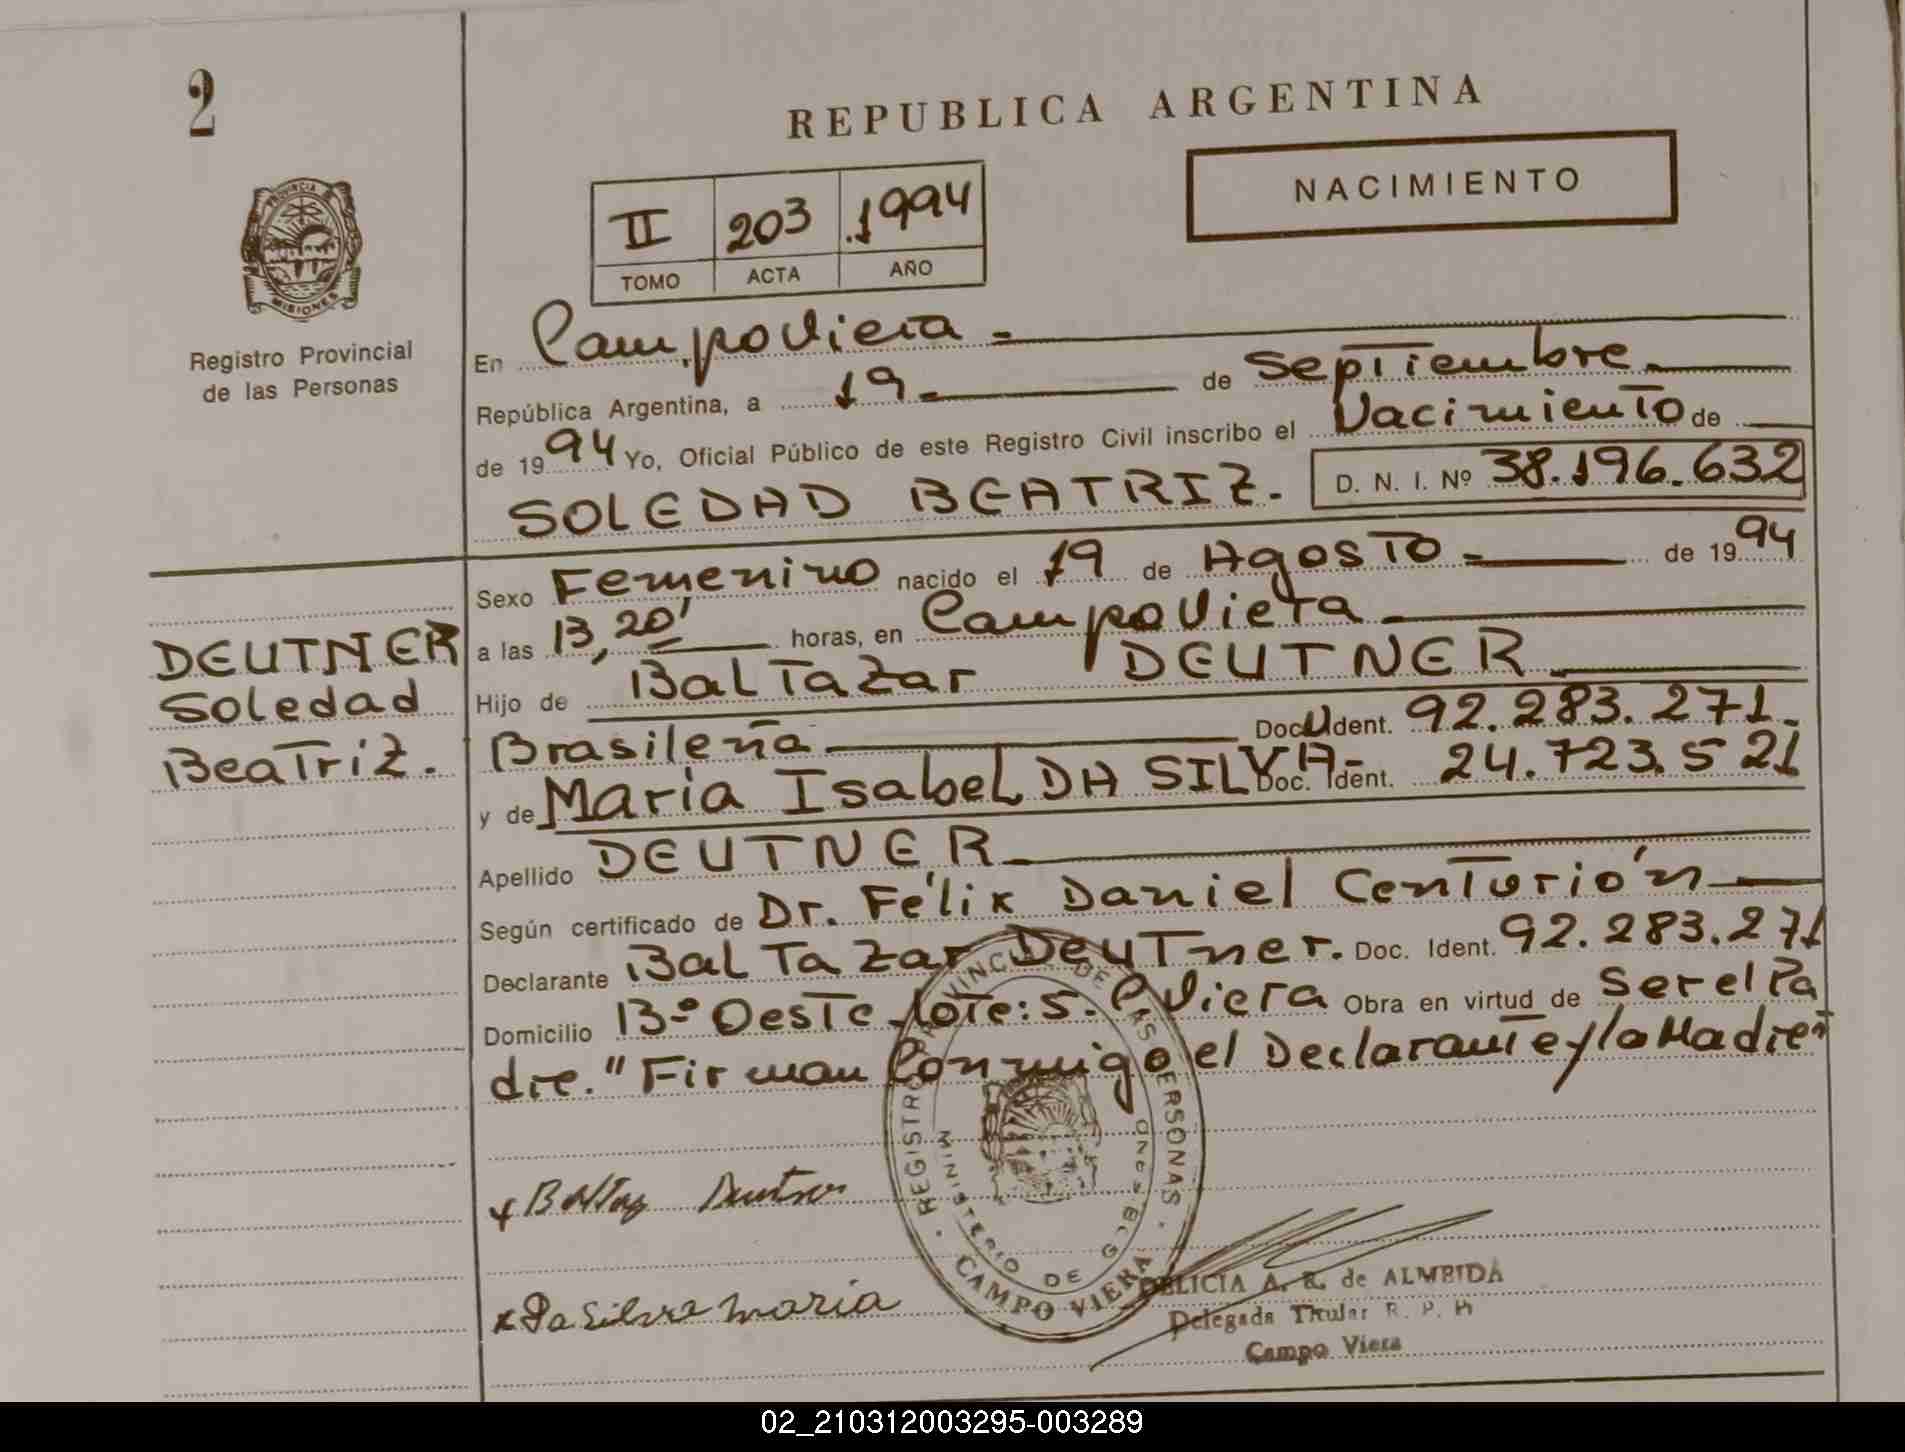 2
REPUBLICA ARGENTINA
NACIMIENTO
II 203 1994
TOMO ACTA AÑO
PROVINCIA DE
MISIONES
Registro Provincial
de las Personas
En Campo Viera =
República Argentina, a 19 = de Septiembre
de 1994 Yo, Oficial Público de este Registro Civil inscribo el Nacimiento de
SOLEDAD BEATRIZ. D. N. I. Nº 38.196.632
Sexo Femenino nacido el 19 de Agosto = de 1994
a las 13,20' horas, en Campo Viera
Hijo de BalTazar DEUTNER
Brasileña Doc. Ident. 92.283.271.
y de Maria Isabel DA SILVA- Doc. Ident. 24.723.521
Apellido DEUTNER
Según certificado de Dr. Félix Daniel Centurión
Declarante BalTazar DeuTner. Doc. Ident. 92.283.271
Domicilio 13-º Oeste lote: 5. C. Viera Obra en virtud de ser el Pa
dre. "Firman Conmigo el Declarante y la Madre"
DEUTNER
Soledad
BeaTriz.
x Baltaz Deutner
x Da Silva maria
REGISTRO PROVINCIAL DE LAS PERSONAS
MINISTERIO DE GOBIERNO
CAMPO VIERA
DELICIA A. R. de ALMEIDA
Delegada Titular R. P. P.
Campo Viera
02_210312003295-003289